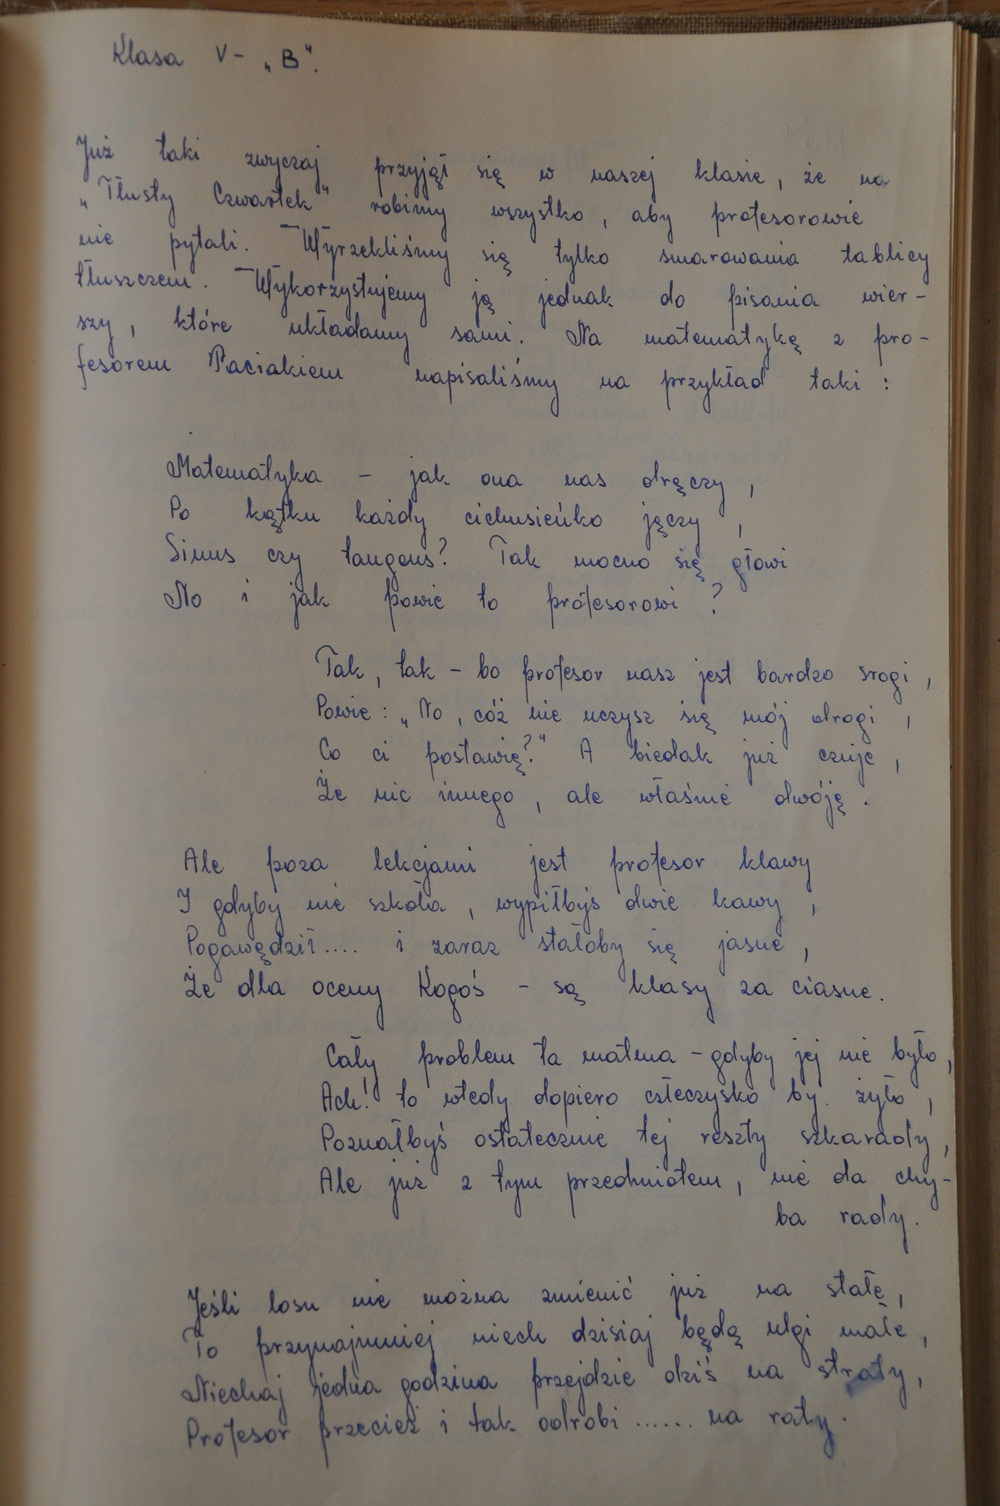 Klasa V- „B".
Już taki zwyczaj przyjął się w naszej klasie, że na
„Tłusty Czwartek" robimy wszystko, aby profesorowie
nie pytali. Wyrzekliśmy się tylko smarowania tablicy
tłuszczem. Wykorzystujemy ją jednak do pisania wier-
szy, które układamy sami. Na matematykę z pro-
fesorem Paciakiem napisaliśmy na przykład taki:
Matematyka - jak ona nas dręczy,
Po kątku każdy cichusieńko jęczy,
Sinus czy tangens? Tak mocno się głowi
No i jak powie to profesorowi?
Tak, tak - bo profesor nasz jest bardzo srogi,
Powie: „No, cóż nie uczysz się mój drogi,
Co ci postawię?" A biedak już czuje,
Że nic innego, ale właśnie dwóję.
Ale poza lekcjami jest profesor klawy
I gdyby nie szkoła, wypiłbyś dwie kawy,
Pogawędził.... i zaraz stałoby się jasne,
Że dla oceny Kogoś - są klasy za ciasne.
Cały problem ta matma - gdyby jej nie było,
Ach! to wtedy dopiero człeczysko by żyło,
Poznałbyś ostatecznie tej reszty szkarady,
Ale już z tym przedmiotem, nie da chy-
ba rady.
Jeśli losu nie można zmienić już na stałe,
To przynajmniej niech dzisiaj będą ulgi małe,
Niechaj jedna godzina przejdzie dziś na straty,
Profesor przecież i tak odrobi ...... na raty.